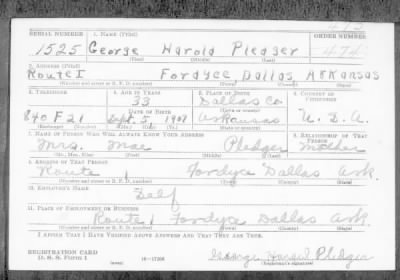 SERIAL NUMBER 1. NAME (Print) ORDER NUMBER
1525 George Harold Pledger 474
(First) (Middle) (Last)
2. ADDRESS (Print)
Route 1 Fordyce Dallas Arkansas
(Number and street or R. F. D. number) (Town) (County) (State)
3. TELEPHONE 4. AGE IN YEARS 5. PLACE OF BIRTH 6. COUNTRY OF CITIZENSHIP
33 Dallas Co
DATE OF BIRTH (Town or county)
840 F 21 Sept. 5 1907 Arkansas U.S.A.
(Exchange) (Number) (Mo.) (Day) (Yr.) (State or country)
7. NAME OF PERSON WHO WILL ALWAYS KNOW YOUR ADDRESS 8. RELATIONSHIP OF THAT PERSON
Mrs. Mae Pledger Mother
(Mr., Mrs., Miss) (First) (Middle) (Last)
9. ADDRESS OF THAT PERSON
Route 1 Fordyce Dallas Ark.
(Number and street or R. F. D. number) (Town) (County) (State)
10. EMPLOYER'S NAME
Self
11. PLACE OF EMPLOYMENT OR BUSINESS
Route 1 Fordyce Dallas Ark.
(Number and street or R. F. D. number) (Town) (County) (State)
I AFFIRM THAT I HAVE VERIFIED ABOVE ANSWERS AND THAT THEY ARE TRUE.
REGISTRATION CARD
D. S. S. Form 1 (over) 16—17105 George Harold Pledger
(Registrant's signature)